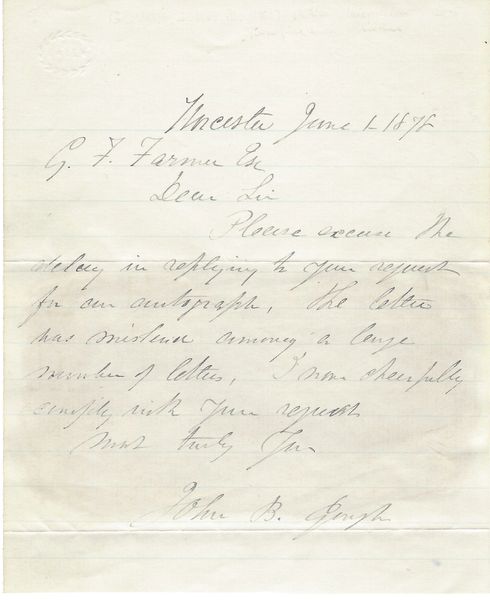 Worcester June 1 1878
G. F. Farmer Esq
Dear Sir
Please excuse the
delay in replying to your request
for an autograph. The letter
was mislaid among a large
number of letters. I now cheerfully
comply with your request
Most truly Yours
John B. Gough